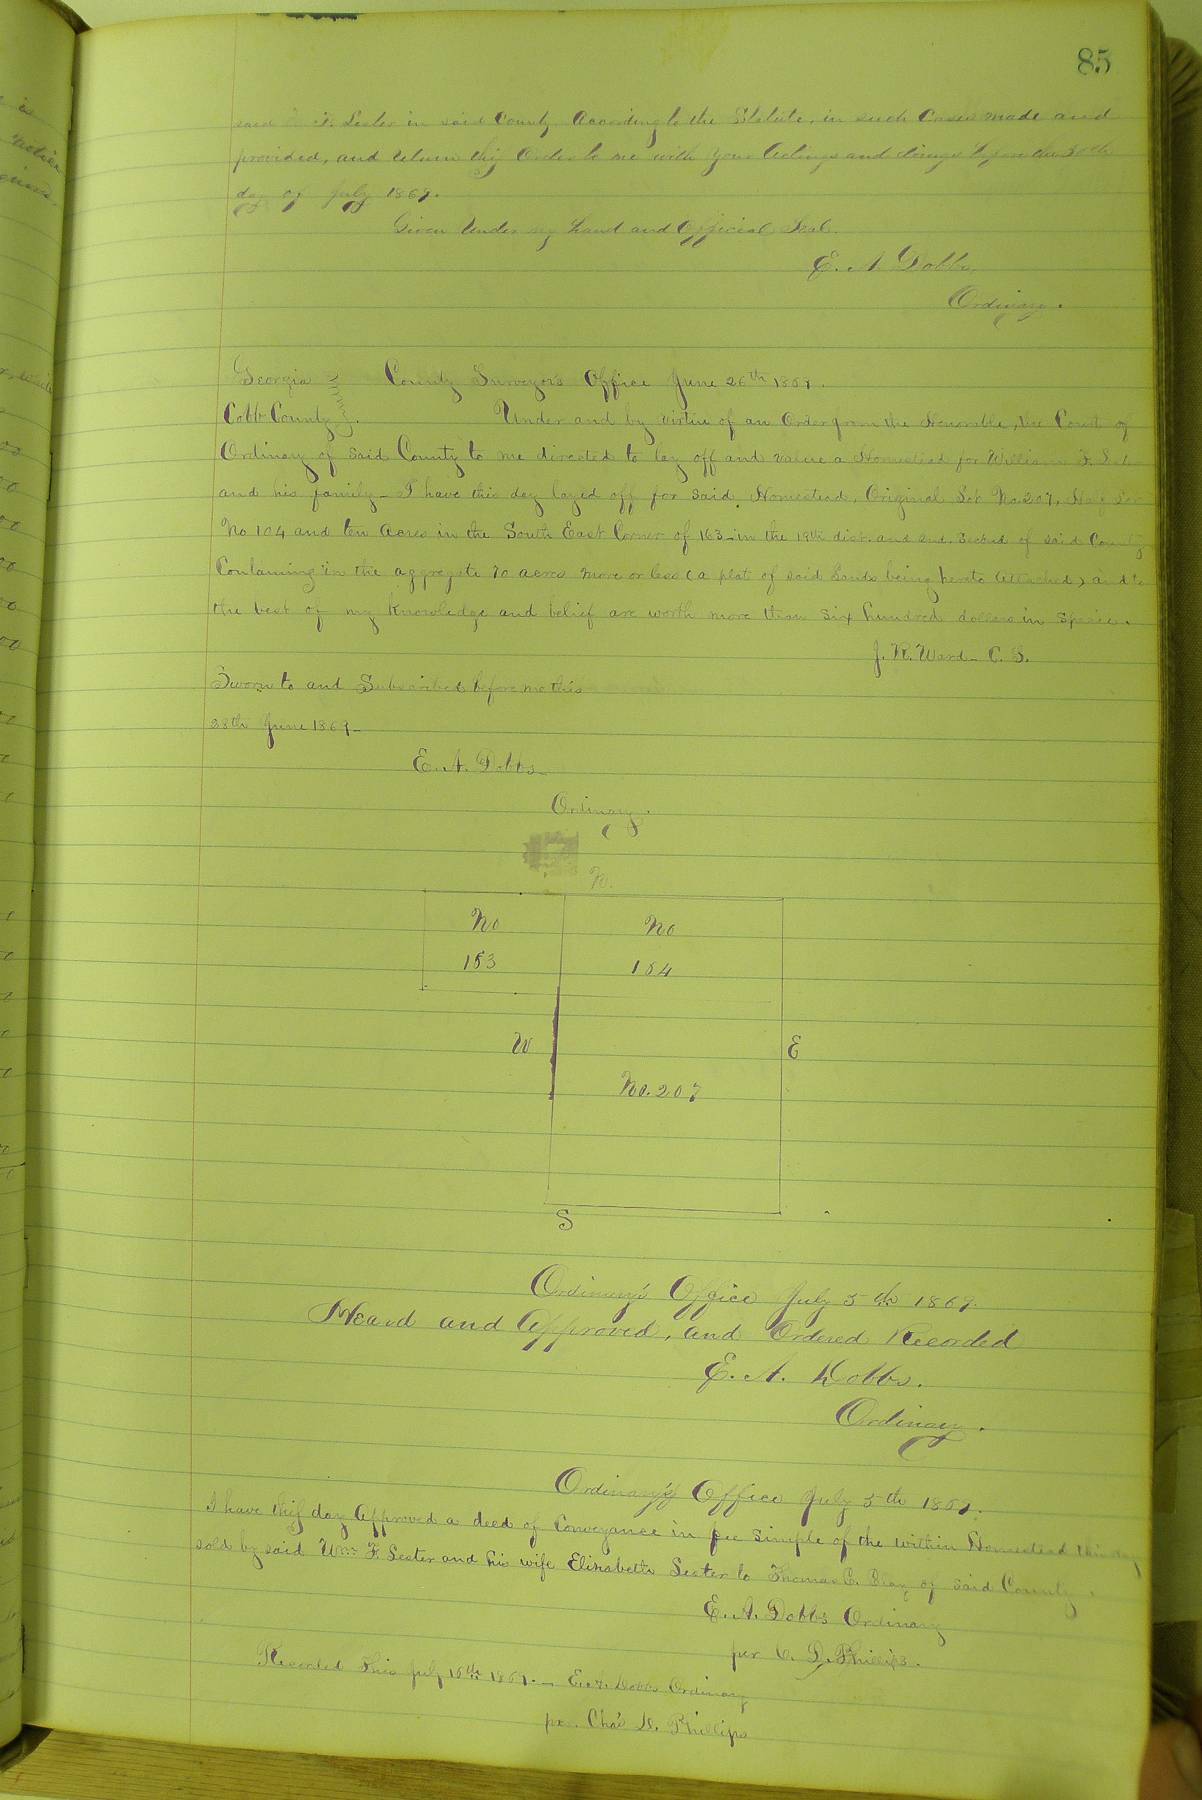 85
said F. Lester in said County According to the Statute, in such Cases made and
provided, and return this Order to me with your Actings and doings before the
day of July 1869.
Given Under my hand and Official Seal.
E. A. Dobbs
Ordinary.
Georgia County Surveyors Office June 26th 1869.
Cobb County. Under and by virtue of an Order from the Honorable, the Court of
Ordinary of Said County to me directed to lay off and value a Homestead for William F.
and his family - I have this day layed off for Said Homestead, Original Lot No. 207, Half Lot
No 154 and ten Acres in the South East Corner of 153 in the 19th dist. and 2nd. Section of said County
Containing in the aggregate 70 acres more or less (a plat of said Lands being hereto attached,) and to
the best of my Knowledge and belief are worth more than six hundred dollars in Specie.
J. R. Ward - C. S.
Sworn to and Subscribed before me this
28th June 1869 -
E. A. Dobbs -
Ordinary.
N.
No No
153 154
W E
No. 207
S
Ordinary's Office July 5th 1869.
Heard and Approved, and Ordered Recorded
E. A. Dobbs.
Ordinary.
Ordinary's Office July 5th 1869.
I have this day Approved a deed of Conveyance in fee simple of the within Homestead this day
sold by said Wm. F. Lester and his wife Elizabeth Lester to Thomas C. of said County.
E. A. Dobbs Ordinary
per C. D. Phillips.
Recorded This July 16th 1869. - E. A. Dobbs Ordinary
pr. Chas D. Phillips